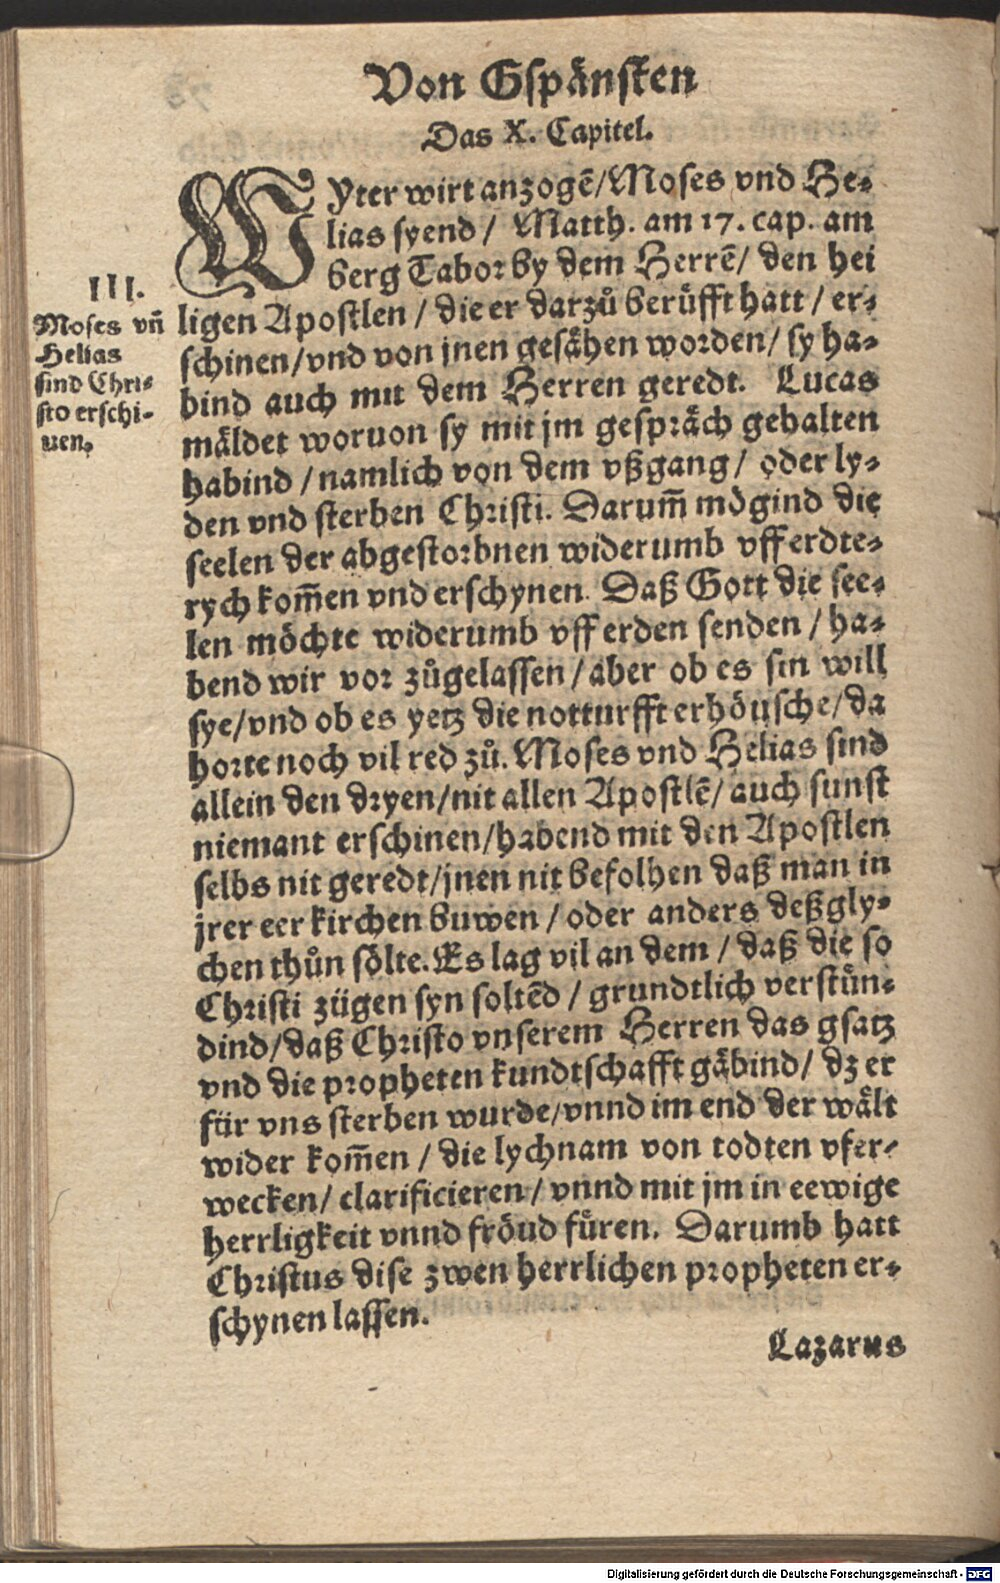 Von Gspänsten
Das X. Capitel.
WYter wirt anzogē/Moses vnd He-
lias syend / Matth. am 17. cap. am
berg Tabor by dem Herrē/ den hei
ligen Apostlen / die er darzů berüfft hatt / er-
schinen/vnd von jnen gesähen worden/ sy ha-
bind auch mit dem Herren geredt. Lucas
mäldet woruon sy mit jm gespräch gehalten
habind / namlich von dem vßgang / oder ly-
den vnd sterben Christi. Darum̄ mögind die
seelen der abgestorbnen widerumb vff erdte-
rych kom̄en vnd erschynen. Daß Gott die see-
len möchte widerumb vff erden senden / ha-
bend wir vor zůgelassen / aber ob es sin will
sye/vnd ob es yetz die notturfft erhöusche/da
horte noch vil red zů. Moses vnd Helias sind
allein den dryen/nit allen Apostlē/ auch sunst
niemant erschinen/habend mit den Apostlen
selbs nit geredt/jnen nit befolhen daß man in
jrer eer kirchen buwen / oder anders deßgly-
chen thůn sölte. Es lag vil an dem / daß die so
Christi zügen syn soltēd / grundtlich verstün-
dind/daß Christo vnserem Herren das gsatz
vnd die propheten kundtschafft gäbind/ dz er
für vns sterben wurde/vnnd im end der wält
wider kom̄en / die lychnam von todten vfer-
wecken/ clarificieren/ vnnd mit jm in eewige
herrligkeit vnnd fröud füren. Darumb hatt
Christus dise zwen herrlichen propheten er-
schynen lassen.
Lazarus
III.
Moses vn̄
Helias
sind Chri-
sto erschi-
nen.
Digitalisierung gefördert durch die Deutsche Forschungsgemeinschaft - DFG